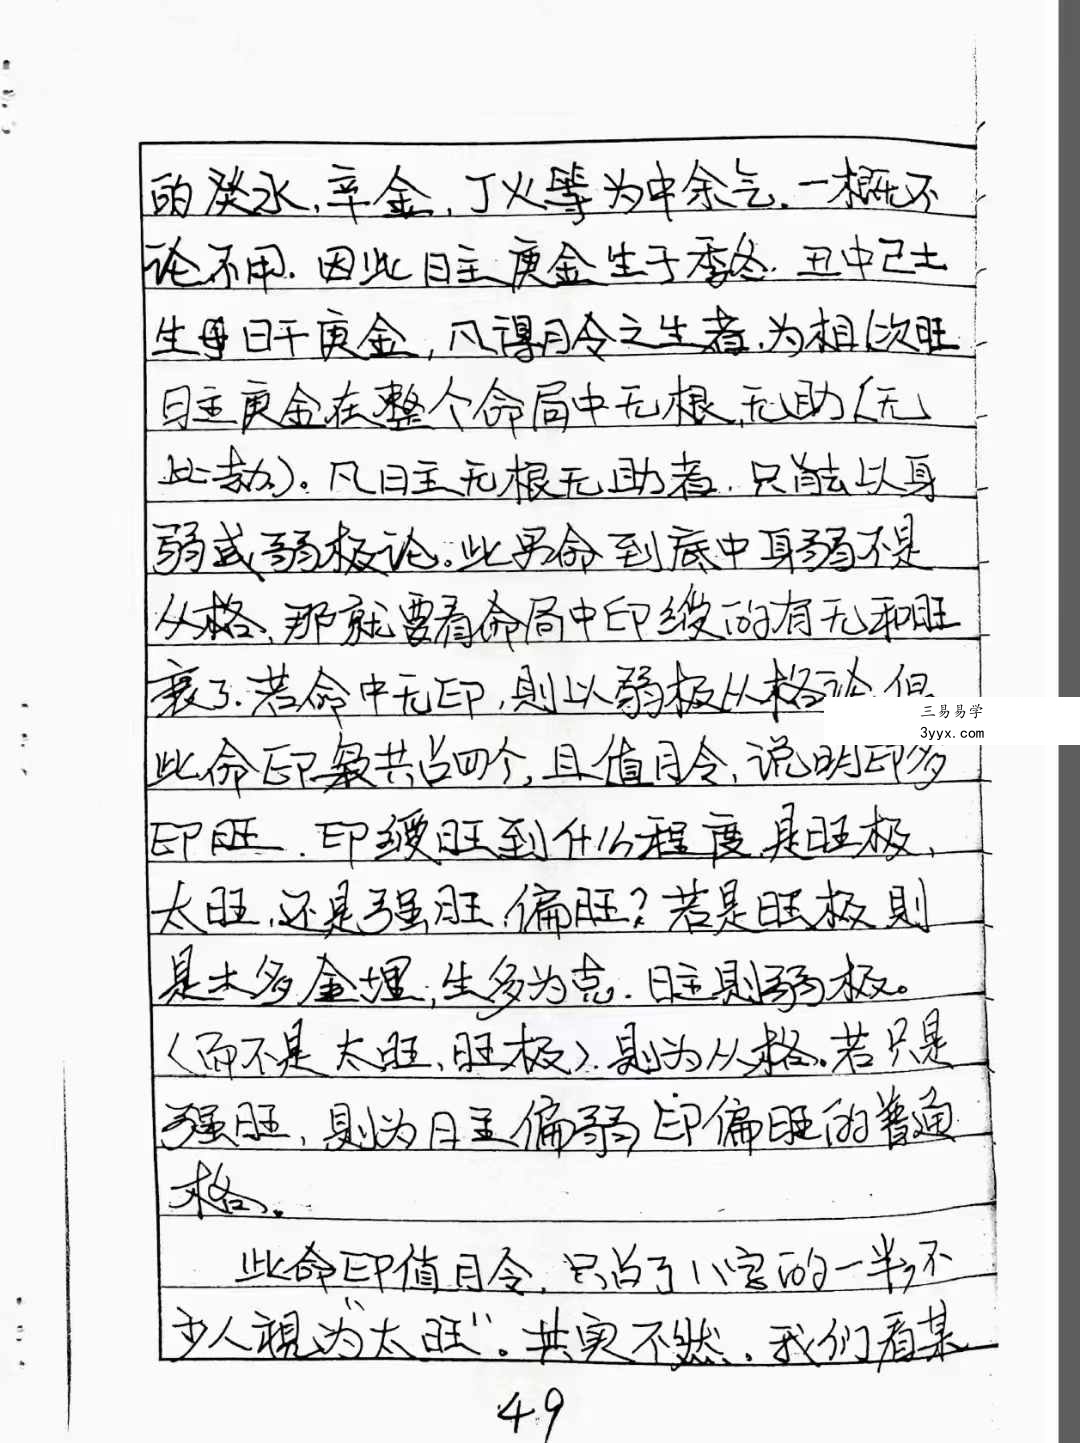 的癸水,辛金,丁火等为中余气.一概不
论不用.因此日主庚金生于季冬.丑中己土
生日干庚金,凡得月令之生者.为相(次旺
日主庚金在整个命局中无根,无助(无
比劫)。凡日主无根无助者.只能以身
弱或弱极论。此男命到底中身弱不是
从格,那就要看命局中印绶的有无和旺
衰了.若命中无印,则以弱极从格论.但
三易易学
3yyx.com
此命印枭共占四个,且值月令,说明印多
印旺.印绶旺到什么程度,是旺极,
太旺,还是强旺,偏旺?若是旺极则
是土多金埋,生多为克.日主则弱极。
(而不是太旺,旺极).则为从格。若只是
强旺,则为日主偏弱,印偏旺的普通
格。
此命印值月令,只占了八字的一半,不
少人视为"太旺"。其实不然.我们看某
49